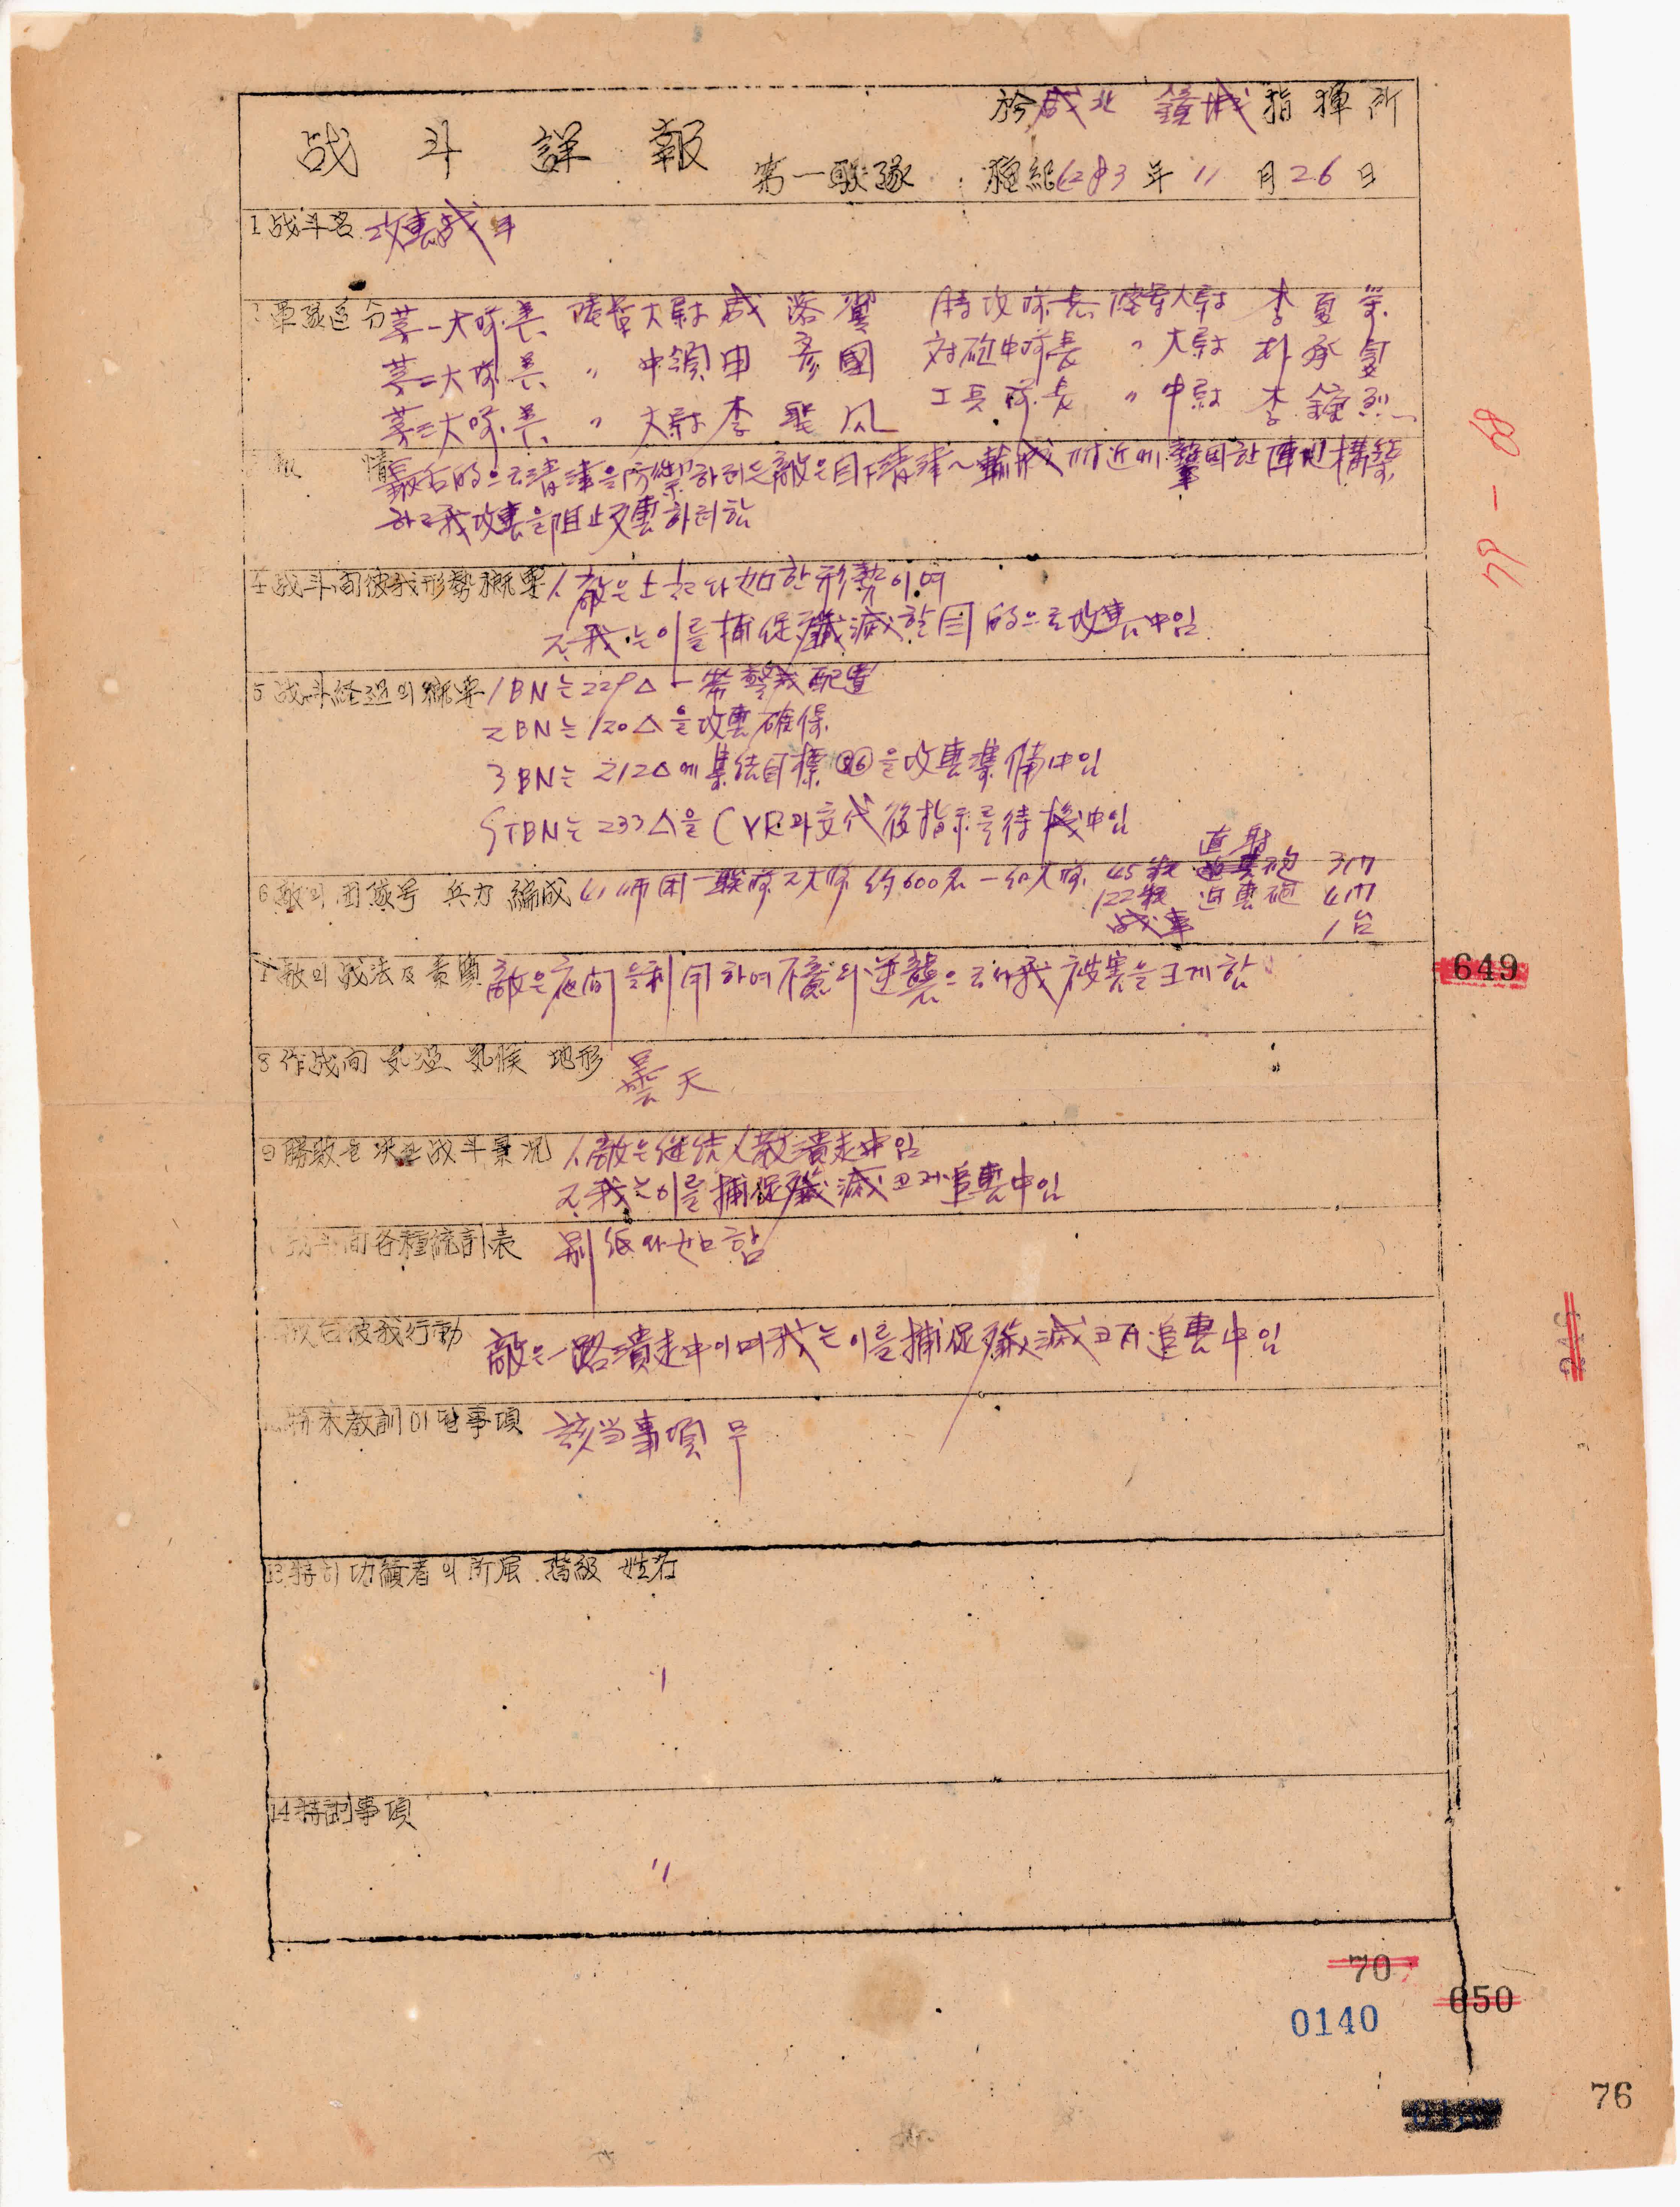 於咸北 鏡城 指揮所
战斗詳報 第一联隊 檀紀4283年11月26日
1 战斗名 攻擊战斗
2 軍隊区分 第一大隊長 陸軍大尉 咸 翼 特攻隊長 陸軍大尉 李夏榮
第二大隊長 〃 中領 申彦國 対砲中隊長 〃 大尉 朴承
第三大隊長 〃 大尉 李 工兵隊長 〃 中尉 李鐘烈
3 敵情 最后的으로 清津을 防禦하려는 敵은 目下 清津~輸城 附近에 鞏固한 陣地構築
하고 我攻擊을 阻止 反擊하려함
4 战斗間彼我形勢概要 1、敵은 上記와 如한 形勢이며
2、我는 이를 捕促 殲滅할 目的으로 攻擊中임
5 战斗経過의 概要 1BN는 229△ 一帯 警戒配置
2BN는 120△을 攻擊 確保
3BN는 212△에 集結 目標 86을 攻擊準備中임
STBN는 233△을 CVR과 交代後 指示를 待機中임
直射
6 敵의 団隊号 兵力 編成 41師団 一联隊 2大隊 約600名 一個大隊 45粍 砲 3門
122粍 迫擊砲 4門
战車 1台
7 敵의 战法及素質 敵은 夜間을 利用하여 不意의 逆襲으로서 我被害을 크게함
8 作战間 気温、気候 地形 曇天
9 勝敗을 決한 战斗景況 1、敵은 継続 潰走中임
2、我는 이를 捕促 殲滅코저 追擊中임
战斗間各種統計表 別紙와 如함
战后彼我行動 敵은 一路 潰走中이며 我는 이를 捕促 殲滅코저 追擊中임
将来教訓이될事項 該当事項 무
13 特히 功績者의 所属 階級 姓名
〃
14 特記事項
〃
79-68
649
70
650
0140
76